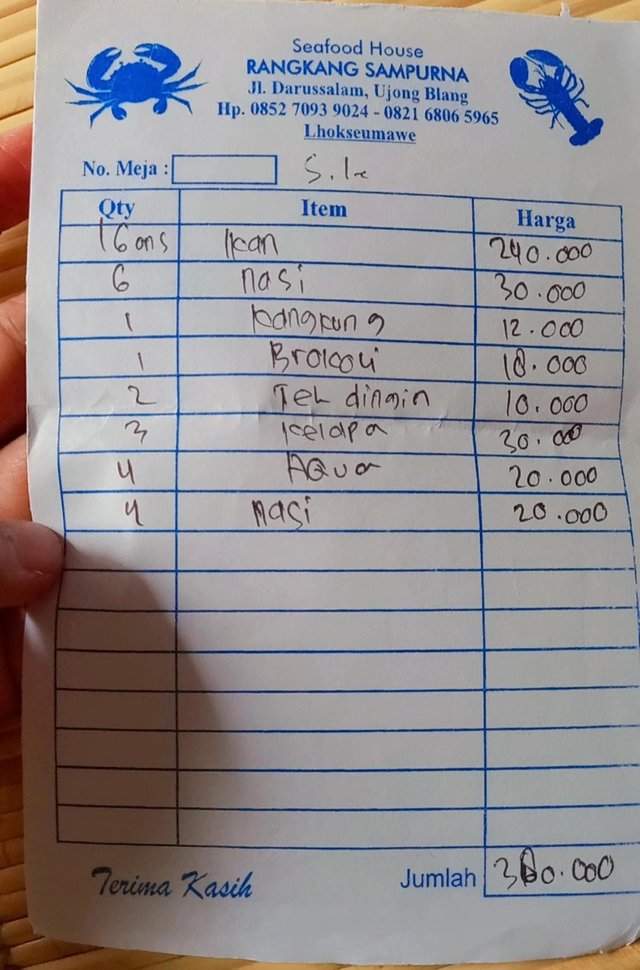 Seafood House
RANGKANG SAMPURNA
Jl. Darussalam, Ujong Blang
Hp. 0852 7093 9024 - 0821 6806 5965
Lhokseumawe
No. Meja :
Qty Item Harga
16 ons Ikan 240.000
6 nasi 30.000
1 Kangkung 12.000
1 Brokoli 18.000
2 Teh dingin 10.000
3 Kelapa 30.000
4 AQUA 20.000
4 nasi 20.000
Terima Kasih Jumlah 380.000